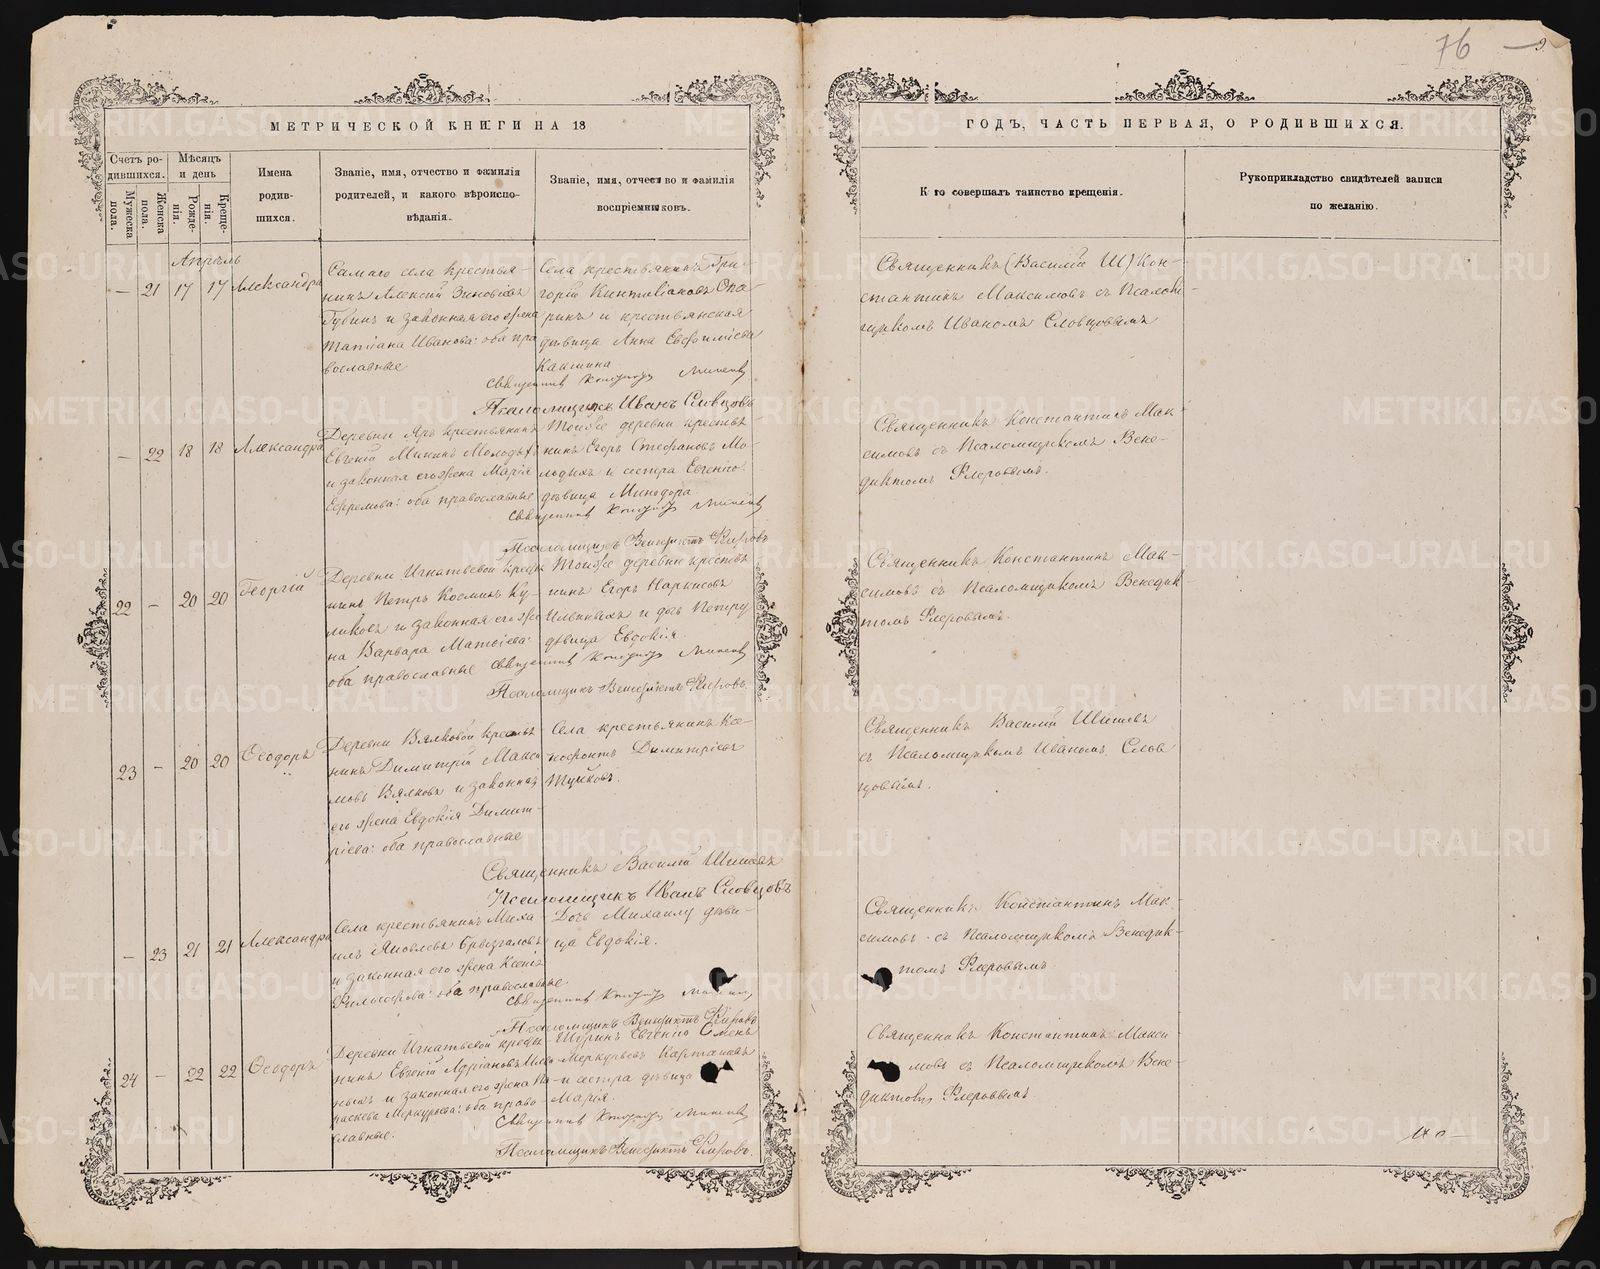 76
МЕТРИЧЕСКОЙ КНИГИ НА 18
ГОДЪ, ЧАСТЬ ПЕРВАЯ, О РОДИВШИХСЯ.
Счетъ ро-
дившихся.
Мужеска
пола.
Женска
пола.
Мѣсяцъ
и день
Рожде-
нія.
Креще-
нія.
Имена
родив-
шихся.
Званіе, имя, отчество и фамилія
родителей, и какого вѣроиспо-
вѣданія.
Званіе, имя, отчество и фамилія
воспріемниковъ.
Кто совершалъ таинство крещенія.
Рукоприкладство свидѣтелей записи
по желанію.
Апрѣль
— 21 17 17 Александра
Самаго села крестья-
нинъ Алексій Зиновіевъ
Губинъ и законная его жена
Татіана Иванова: оба пра
вославные
Села крестьянинъ Гри-
горій Опа-
ринъ и крестьянская
дѣвица Анна Евфиміева
Священникъ
Псаломщикъ Иванъ Словцовъ
Священникъ (Василій Ш) Кон-
стантинъ Максимовъ съ Псалом-
щикомъ Иваномъ Словцовымъ
— 22 18 18 Александра
Деревни Яръ крестьянинъ
Евгеній Мининъ Молодыхъ
и законная его жена Марія
Ефремова: оба православные
Той же деревни крестья
нинъ Егоръ Стефановъ Мо-
лодыхъ и сестра Евгенію
дѣвица Минодора
Священникъ
Псаломщикъ Венедиктъ Флеровъ
Священникъ Константинъ Мак-
симовъ съ Псаломщикомъ Вене-
диктомъ Флеровымъ.
22 — 20 20 Георгій
Деревни Игнатьевой крестья
нинъ Петръ Косминъ Ку-
ликовъ и законная его же
на Варвара Матѳіева:
оба православные
Той же деревни крестья
нинъ Егоръ Наркисовъ
Ильиныхъ и дочь Петру
дѣвица Евдокія.
Священникъ
Псаломщикъ Венедиктъ Флеровъ.
Священникъ Константинъ Мак-
симовъ съ Псаломщикомъ Венедик
томъ Флеровымъ.
23 — 20 20 Ѳеодоръ
Деревни Вялковой крестья
нинъ Димитрій Макси
мовъ Вялковъ и законная
его жена Евдокія Димит-
ріева: оба православные
Села крестьянинъ Ксе-
нофонтъ Димитріевъ
Священникъ Василій Шишевъ
Псаломщикъ Иванъ Словцовъ
Священникъ Василій Шишевъ
съ Псаломщикомъ Иваномъ Слов
цовымъ.
— 23 21 21 Александра
Села крестьянинъ Миха
илъ Яковлевъ Брызгаловъ
и законная его жена Ксенія
Философова: оба православные.
Дочь Михаилу дѣви-
ца Евдокія.
Священникъ
Псаломщикъ Венедиктъ Флеровъ
Священникъ Константинъ Мак
симовъ съ Псаломщикомъ Венедик-
томъ Флеровымъ
24 — 22 22 Ѳеодоръ
Деревни Игнатьевой крестья
нинъ Евгеній Адріановъ Ильи
ныхъ и законная его жена Па-
раскева Меркурьева: оба право-
славные.
Шуринъ Евгенію
Меркурьевъ Карташовъ
и сестра дѣвица
Марія.
Священникъ
Псаломщикъ Венедиктъ Флеровъ.
Священникъ Константинъ Макси
мовъ съ Псаломщикомъ Вене-
диктомъ Флеровымъ
METRIKI.GASO-URAL.RU